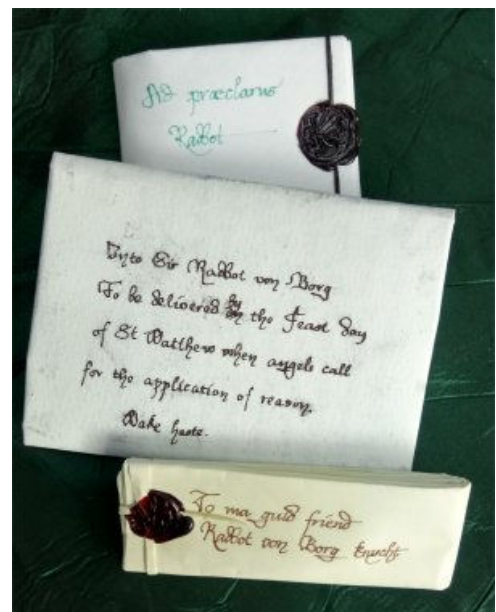 Ad præclarus
Radbot
Unto Sir Radbot von Borg
To be delivered by on the Feast day
of St Matthew when angels call
for the application of reason.
Make haste.
To ma guid friend
Radbot von Borg